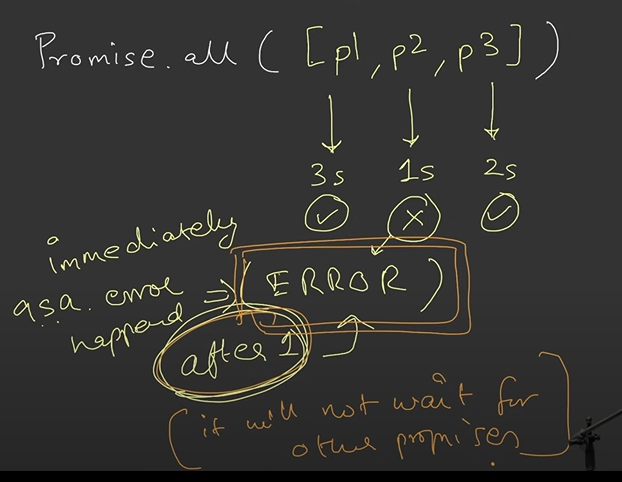 Promise.all ( [p1, p2, p3] )
3s 1s 2s
immediately
a.s.a. error
happend
( ERROR )
after 1
( it will not wait for
other promises )